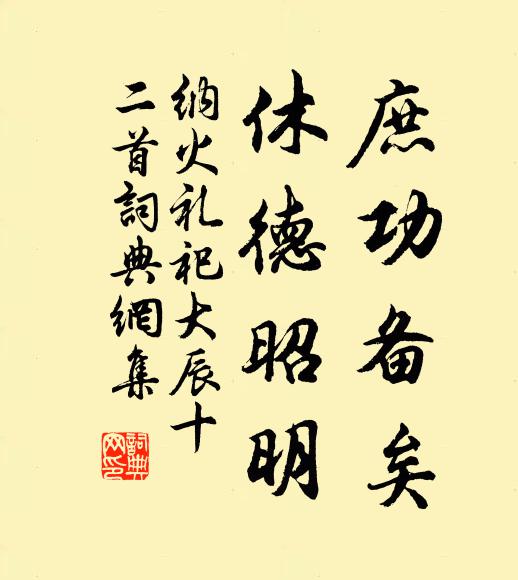 庶功备矣
休德昭明
纳火礼祀大辰十
二首詞典網集
詞典
网印